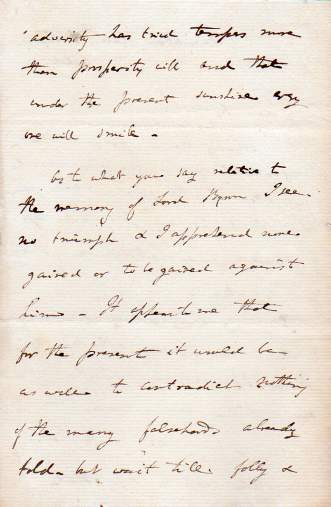 adversity has tried tempers more
than prosperity will and that
under the present sunshine every
one will smile -
as to what you say relative to
the memory of Lord Byron I see
no triumph & I apprehend none
gained or to be gained against
him - It appears to me that
for the present it would be
as well to contradict nothing
of the many falsehoods already
told - but wait till folly &